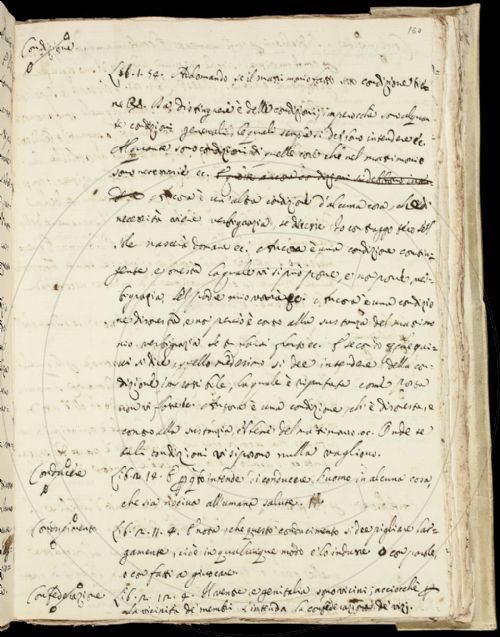 160
Condizione
Lib. 1. 54. Addomando, se il matrimonio fatto sotto condizione tie-
ne. Ra. distinguerà delle condizioni; imperocchè sono alquan-
te condizioni generali, le quali sempre si debbono intendere ec.
Alquante sono condizioni di quelle cose che nel matrimonio
sono necessarie ec.
Ancora è un'altra condizione d'alcuna cosa, che di
necessità viene verbigrazia, se dicesse Io contraggo teco se'l
Sole nascerà domane ec. Ancora è una condizione contin-
gente, e onesta la quale vi si può porre, e non porre, ver-
bigrazia, se'l padre mio vorrà ec. Ancora è una condizio
ne disonesta, e non perciò è contro alla sustanza del matrimo
nio, verbigrazia se tu farai furto ec. E secondo che qui
vi si dice, quello medesimo si dee intendere della con-
dizione impossibile, la quale è riputata come posta
non vi fosse ec. Ancora è una condizione, ch'è disonesta, e
contro alla sustanzia, e'l bene del matrimonio ec. Onde se
tali condizioni vi si pongono nulla vagliono.
Conducere
Lib. 2. 12. E intende di conducere l'uomo in alcuna cosa,
che sia nociva all'umana salute.
Conducimento
Lib. 2. 11. 4. E nota, che questo conducimento si dee pigliare lar-
gamente, cioè in qualunque modo e' lo induce o con parole,
o con fatti a giucare.
Confederazione
Lib. 2. 12. 4. Il ventre, e genitalia sono vicini; acciocchè
la vicinità de' membri s'intenda la confederazione de' vizj.